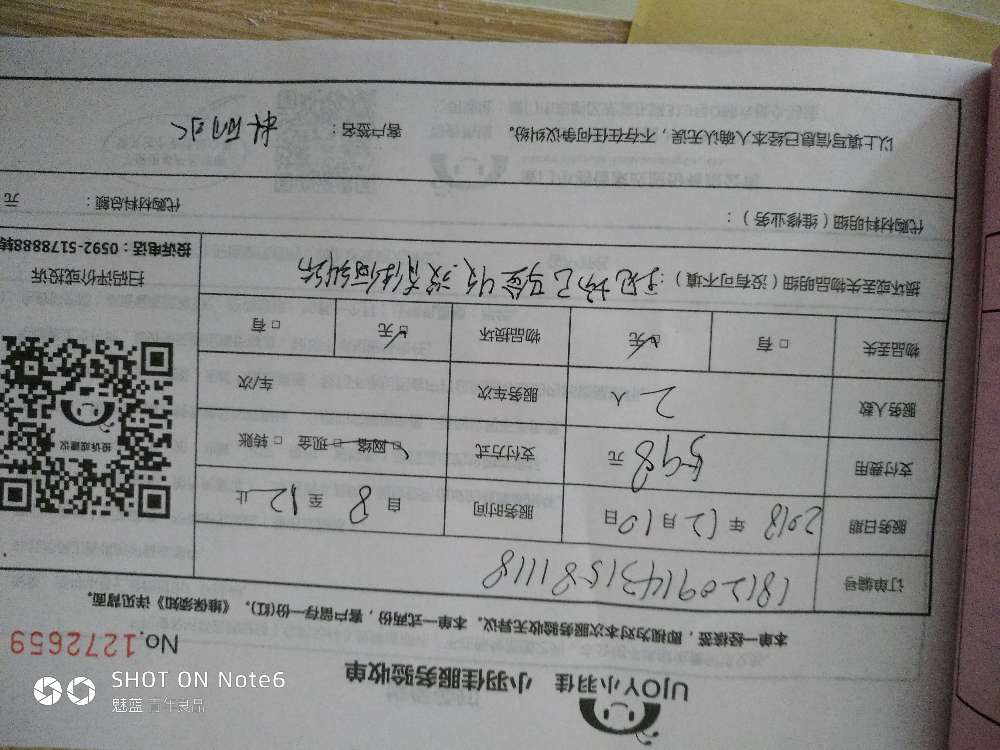 UJOY小羽佳 小羽佳服务验收单
No.1272659
本单一经核签，即视为对本次服务验收无异议。本单一式两份，客户留存一份(红)。《维保须知》详见背面。
订单编号 181209143158 1118
服务日期 2018 年 12 月 10 日 服务时间 自 8 至 12 止
支付费用 598 元 支付方式 □ 网络 □ 现金 □ 转账
服务人数 2 人 服务车次 车/次
物品丢失 □ 有 □ 无 物品损坏 □ 无 □ 有
损坏或丢失物品明细（没有可不填）：
投诉或建议
扫码评价或投诉
投诉电话：0592-5178888转
代购材料明细（维修业务）： 代购材料总额： 元
以上填写信息已经本人确认无误，不存在任何争议纠纷。 客户签名：
SHOT ON Note6
魅蓝 青年良品